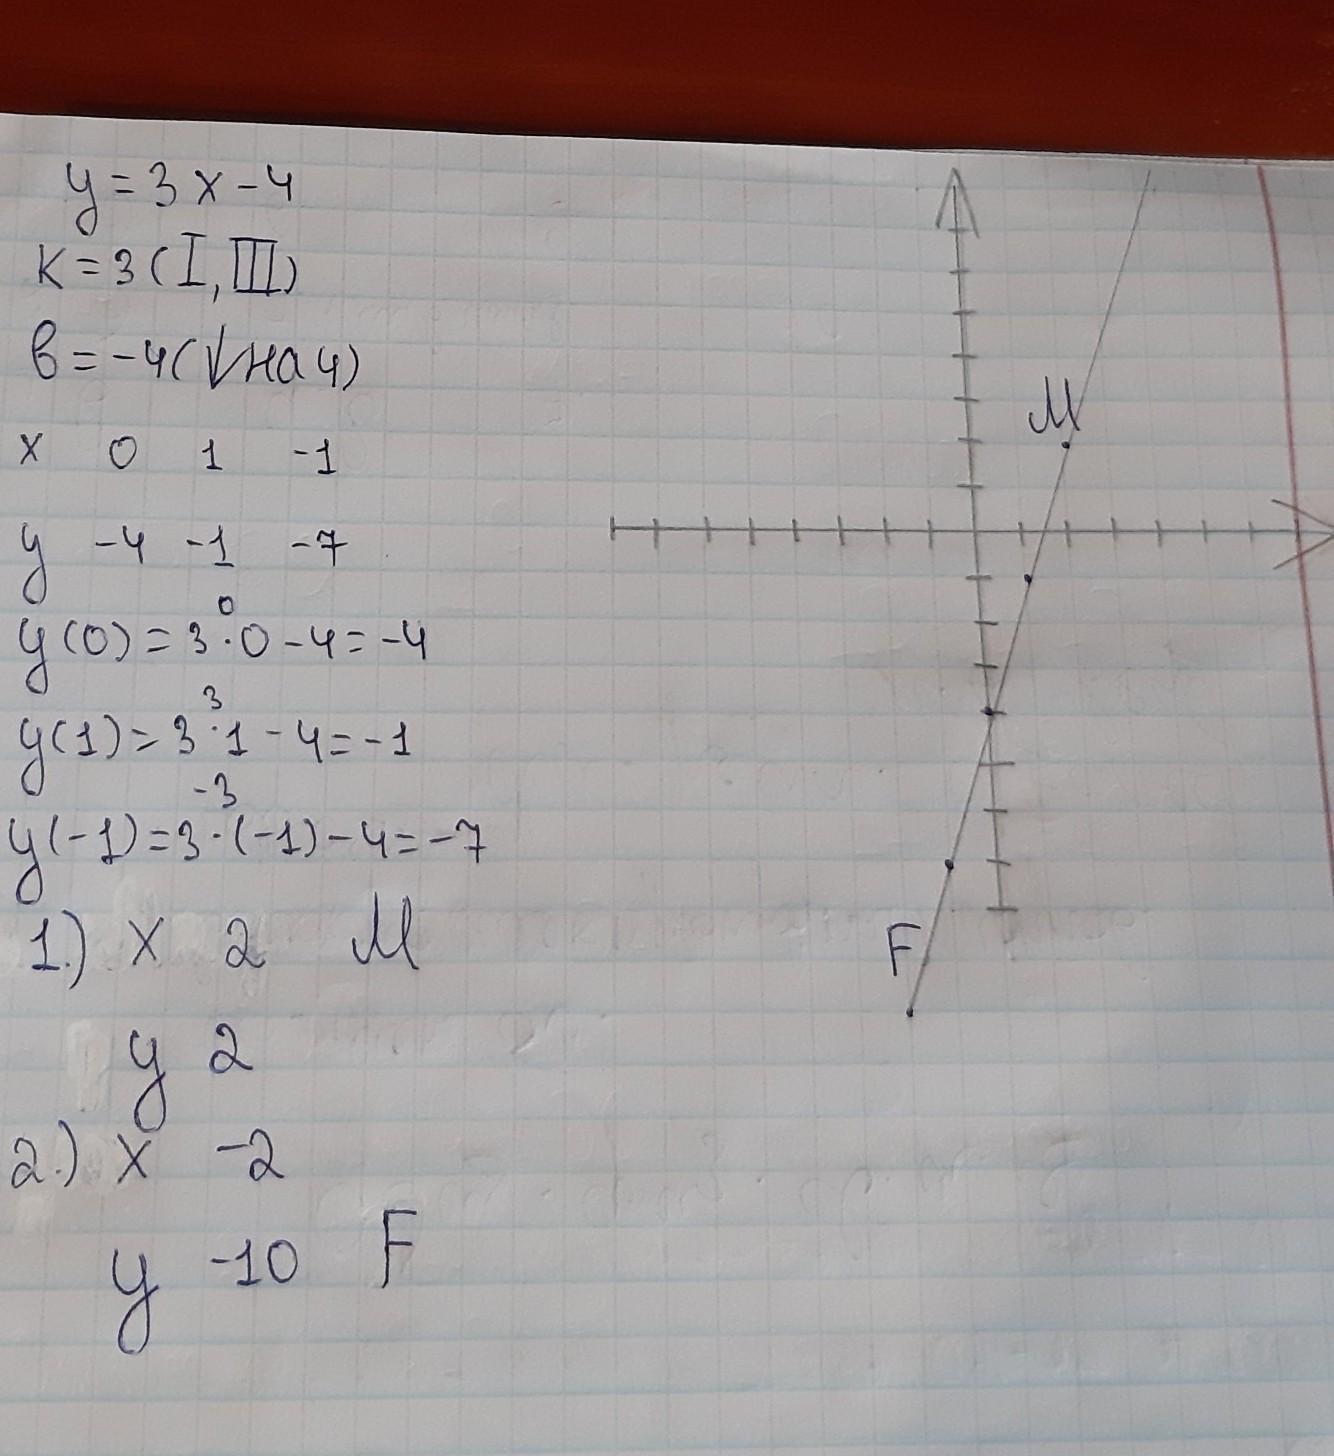 y = 3x - 4
к = 3 (I, III)
в = -4 (↓ на 4)
x 0 1 -1
y -4 -1 -7
0
y(0) = 3 · 0 - 4 = -4
3
y(1) = 3 · 1 - 4 = -1
-3
y(-1) = 3 · (-1) - 4 = -7
1.) x 2 M
y 2
2.) x -2
y -10 F
M
F